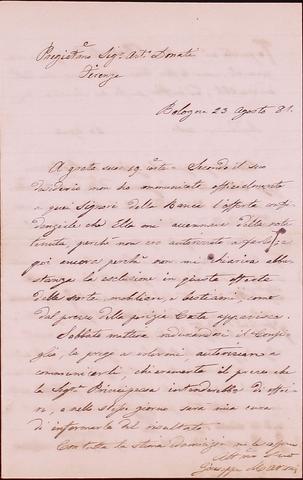 Pregiatmo Sigr Artu Donati
Firenze
Bologna 23 Agosto 81.
A grata sua 19 corte - Secondo il suo
desiderio non ho comunicato officialmente
a quei Signori della Banca l'offerta confi-
denziale che Ella mi accennava della nota
tenuta, perchè non ero autorizzato a farlo, e
poi ancora perchè non mi pareva abba-
stanza la esclusione in questa offerta
delle scorte mobiliari, e bestiami come
dal prezzo della perizia Conte appariva.
Sabbato mattina radunandosi il Consi-
glio, la prego a volermi autorizzare a
comunicarli chiaramente il prezzo che
la Sigra Principessa intenderebbe di offri-
re, e nello stesso giorno sarà mia cura
di informarla del risultato.
Con tutta la stima
Giuseppe